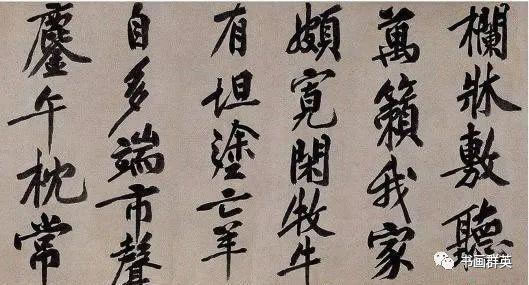 欄牀敷聽
萬籟我家
頗寬閑牧牛
有坦塗亡羊
自多端市聲
鏖午枕常
书画群英